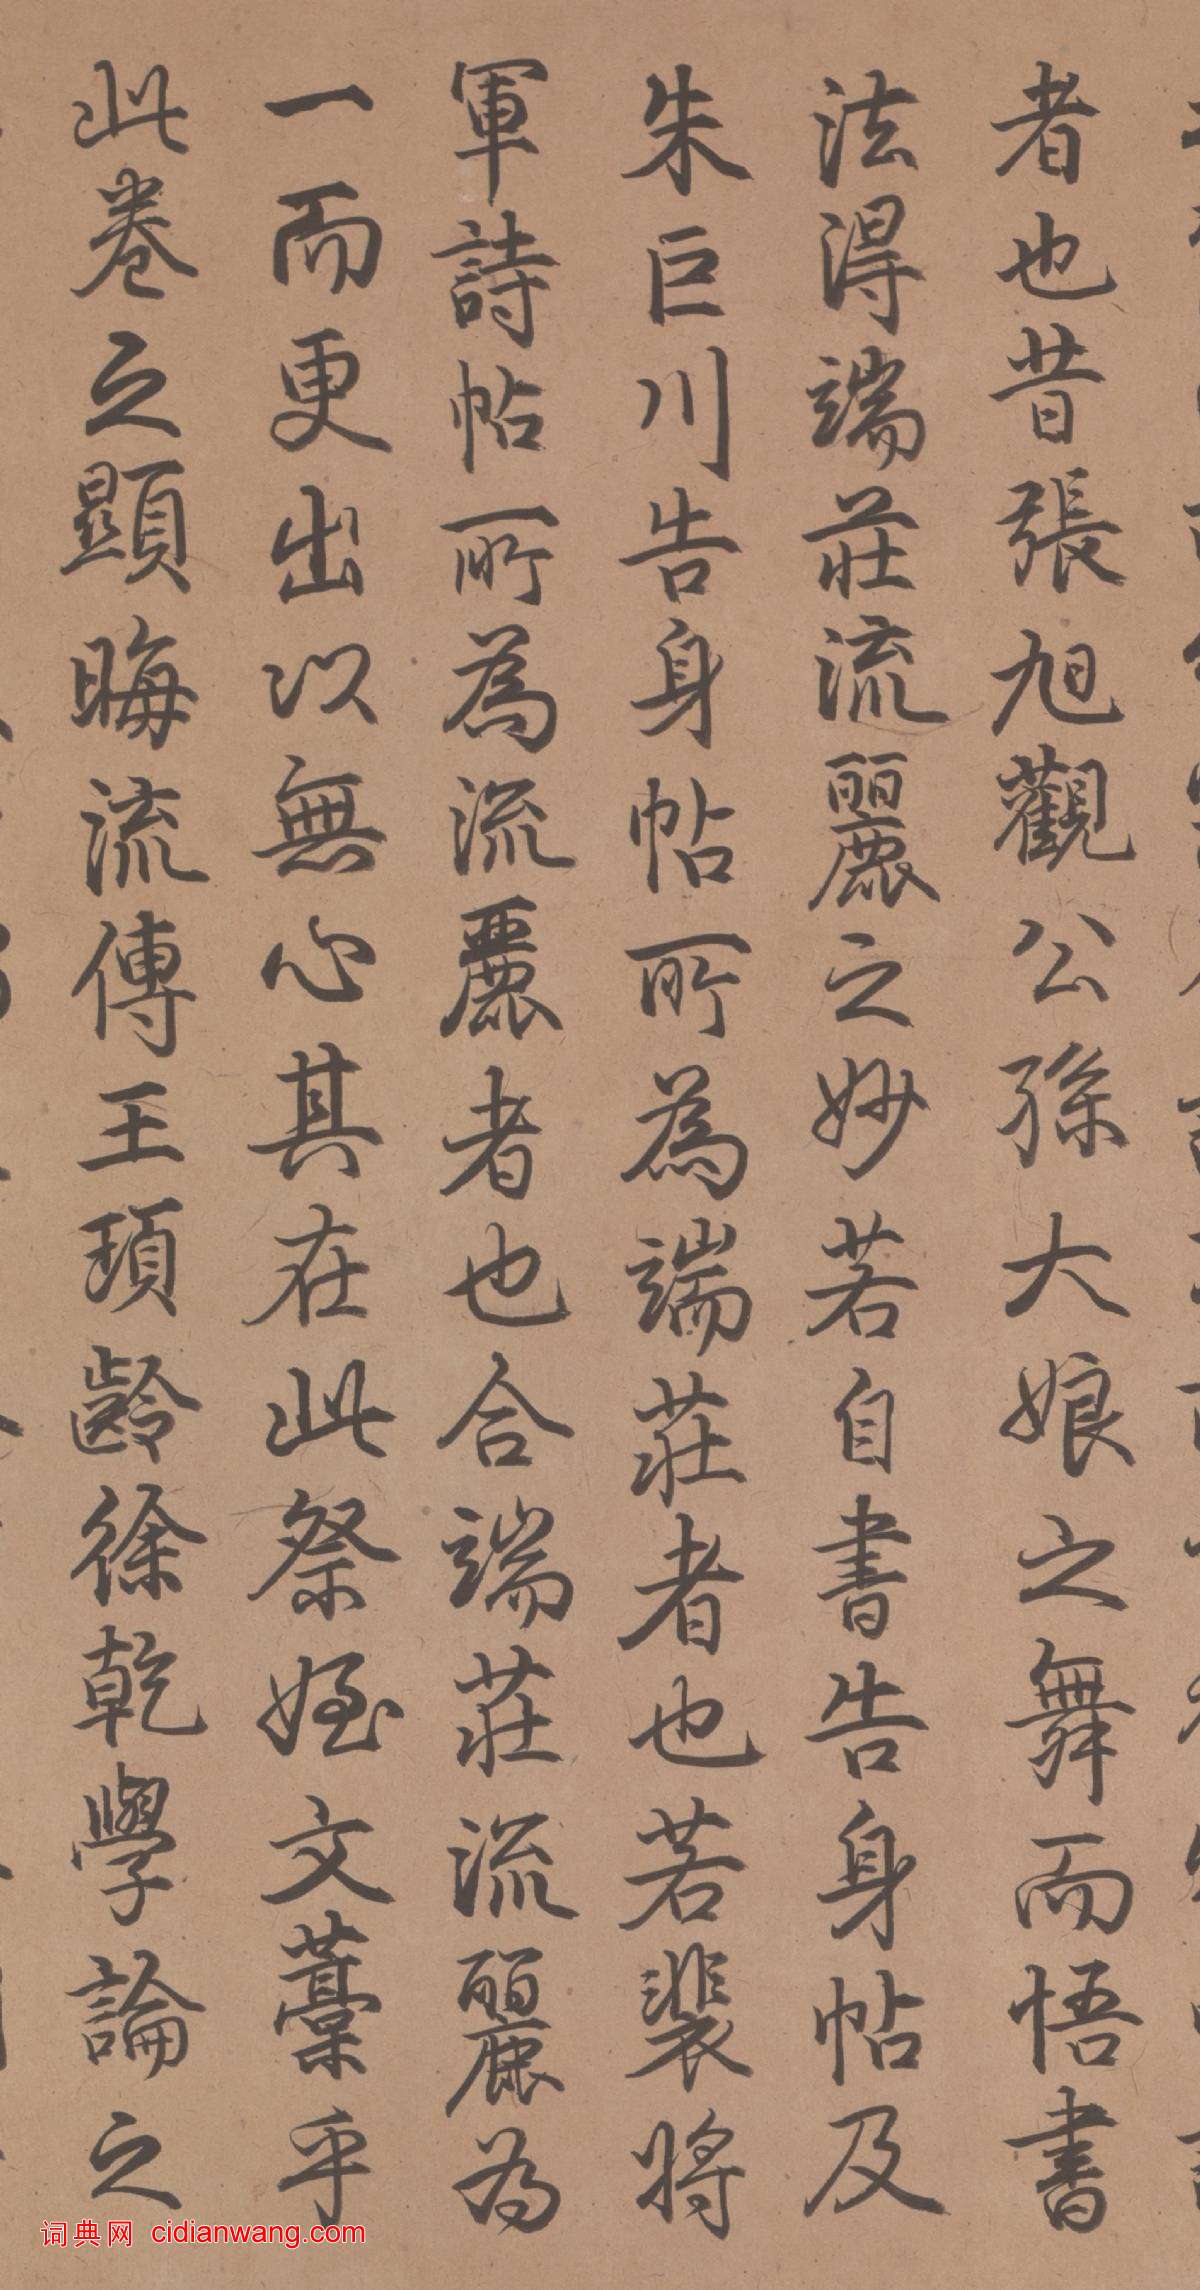 者也昔張旭觀公孫大娘之舞而悟書
法得端莊流麗之妙若自書告身帖及
朱巨川告身帖所為端莊者也若裴將
軍詩帖所為流麗者也合端莊流麗為
一而更出以無心其在此祭姪文藁乎
此卷之顯晦流傳王頊齡徐乾學論之
词典网 cidianwang.com